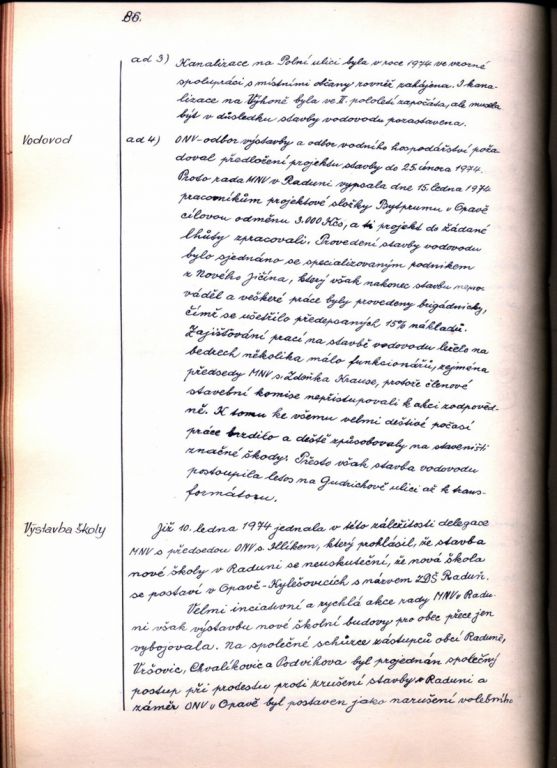 86.
ad 3) Kanalizace na Polní ulici byla v roce 1974 ve vzorné
spolupráci s místními občany rovněž zahájena. I kana-
lizace na Výhoně byla ve II. pololetí započata, ale musela
být v důsledku stavby vodovodu pozastavena.
Vodovod
ad 4) ONV-odbor výstavby a odbor vodního hospodářství poža-
doval předložení projektu stavby do 25. února 1974.
Proto rada MNV v Raduni vypsala dne 15. ledna 1974
pracovníkům projektové složky Bytprumu v Opavě
cílovou odměnu 3.000 Kčs, a ti projekt do žádané
lhůty zpracovali. Provedení stavby vodovodu
bylo sjednáno se specializovaným podnikem
z Nového Jičína, který však nakonec stavbu nepro-
váděl a veškeré práce byly provedeny brigádnicky,
čímž se ušetřilo předepsaných 15% nákladů.
Zajišťování prací na stavbě vodovodu leželo na
bedrech několika málo funkcionářů, zejména
předsedy MNV s. Zdeňka Krause, protože členové
stavební komise nepřistupovali k akci zodpověd-
ně. K tomu ke všemu velmi deštivé počasí
práce brzdilo a deště způsobovaly na staveništi
značné škody. Přesto však stavba vodovodu
postoupila letos na Gudrichově ulici až k trans-
formátoru.
Výstavba školy
Již 10. ledna 1974 jednala v této záležitosti delegace
MNV s předsedou ONV s. Illíkem, který prohlásil, že stavba
nové školy v Raduni se neuskuteční, že nová škola
se postaví v Opavě-Kylešovicích s názvem ZDŠ Raduň.
Velmi inciativní a rychlá akce rady MNV v Radu-
ni však výstavbu nové školní budovy pro obec přece jen
vybojovala. Na společné schůzce zástupců obcí Raduně,
Vršovic, Chvalíkovic a Podvihova byl projednán společný
postup při protestu proti zrušení stavby v Raduni a
záměr ONV v Opavě byl postaven jako narušení volebního